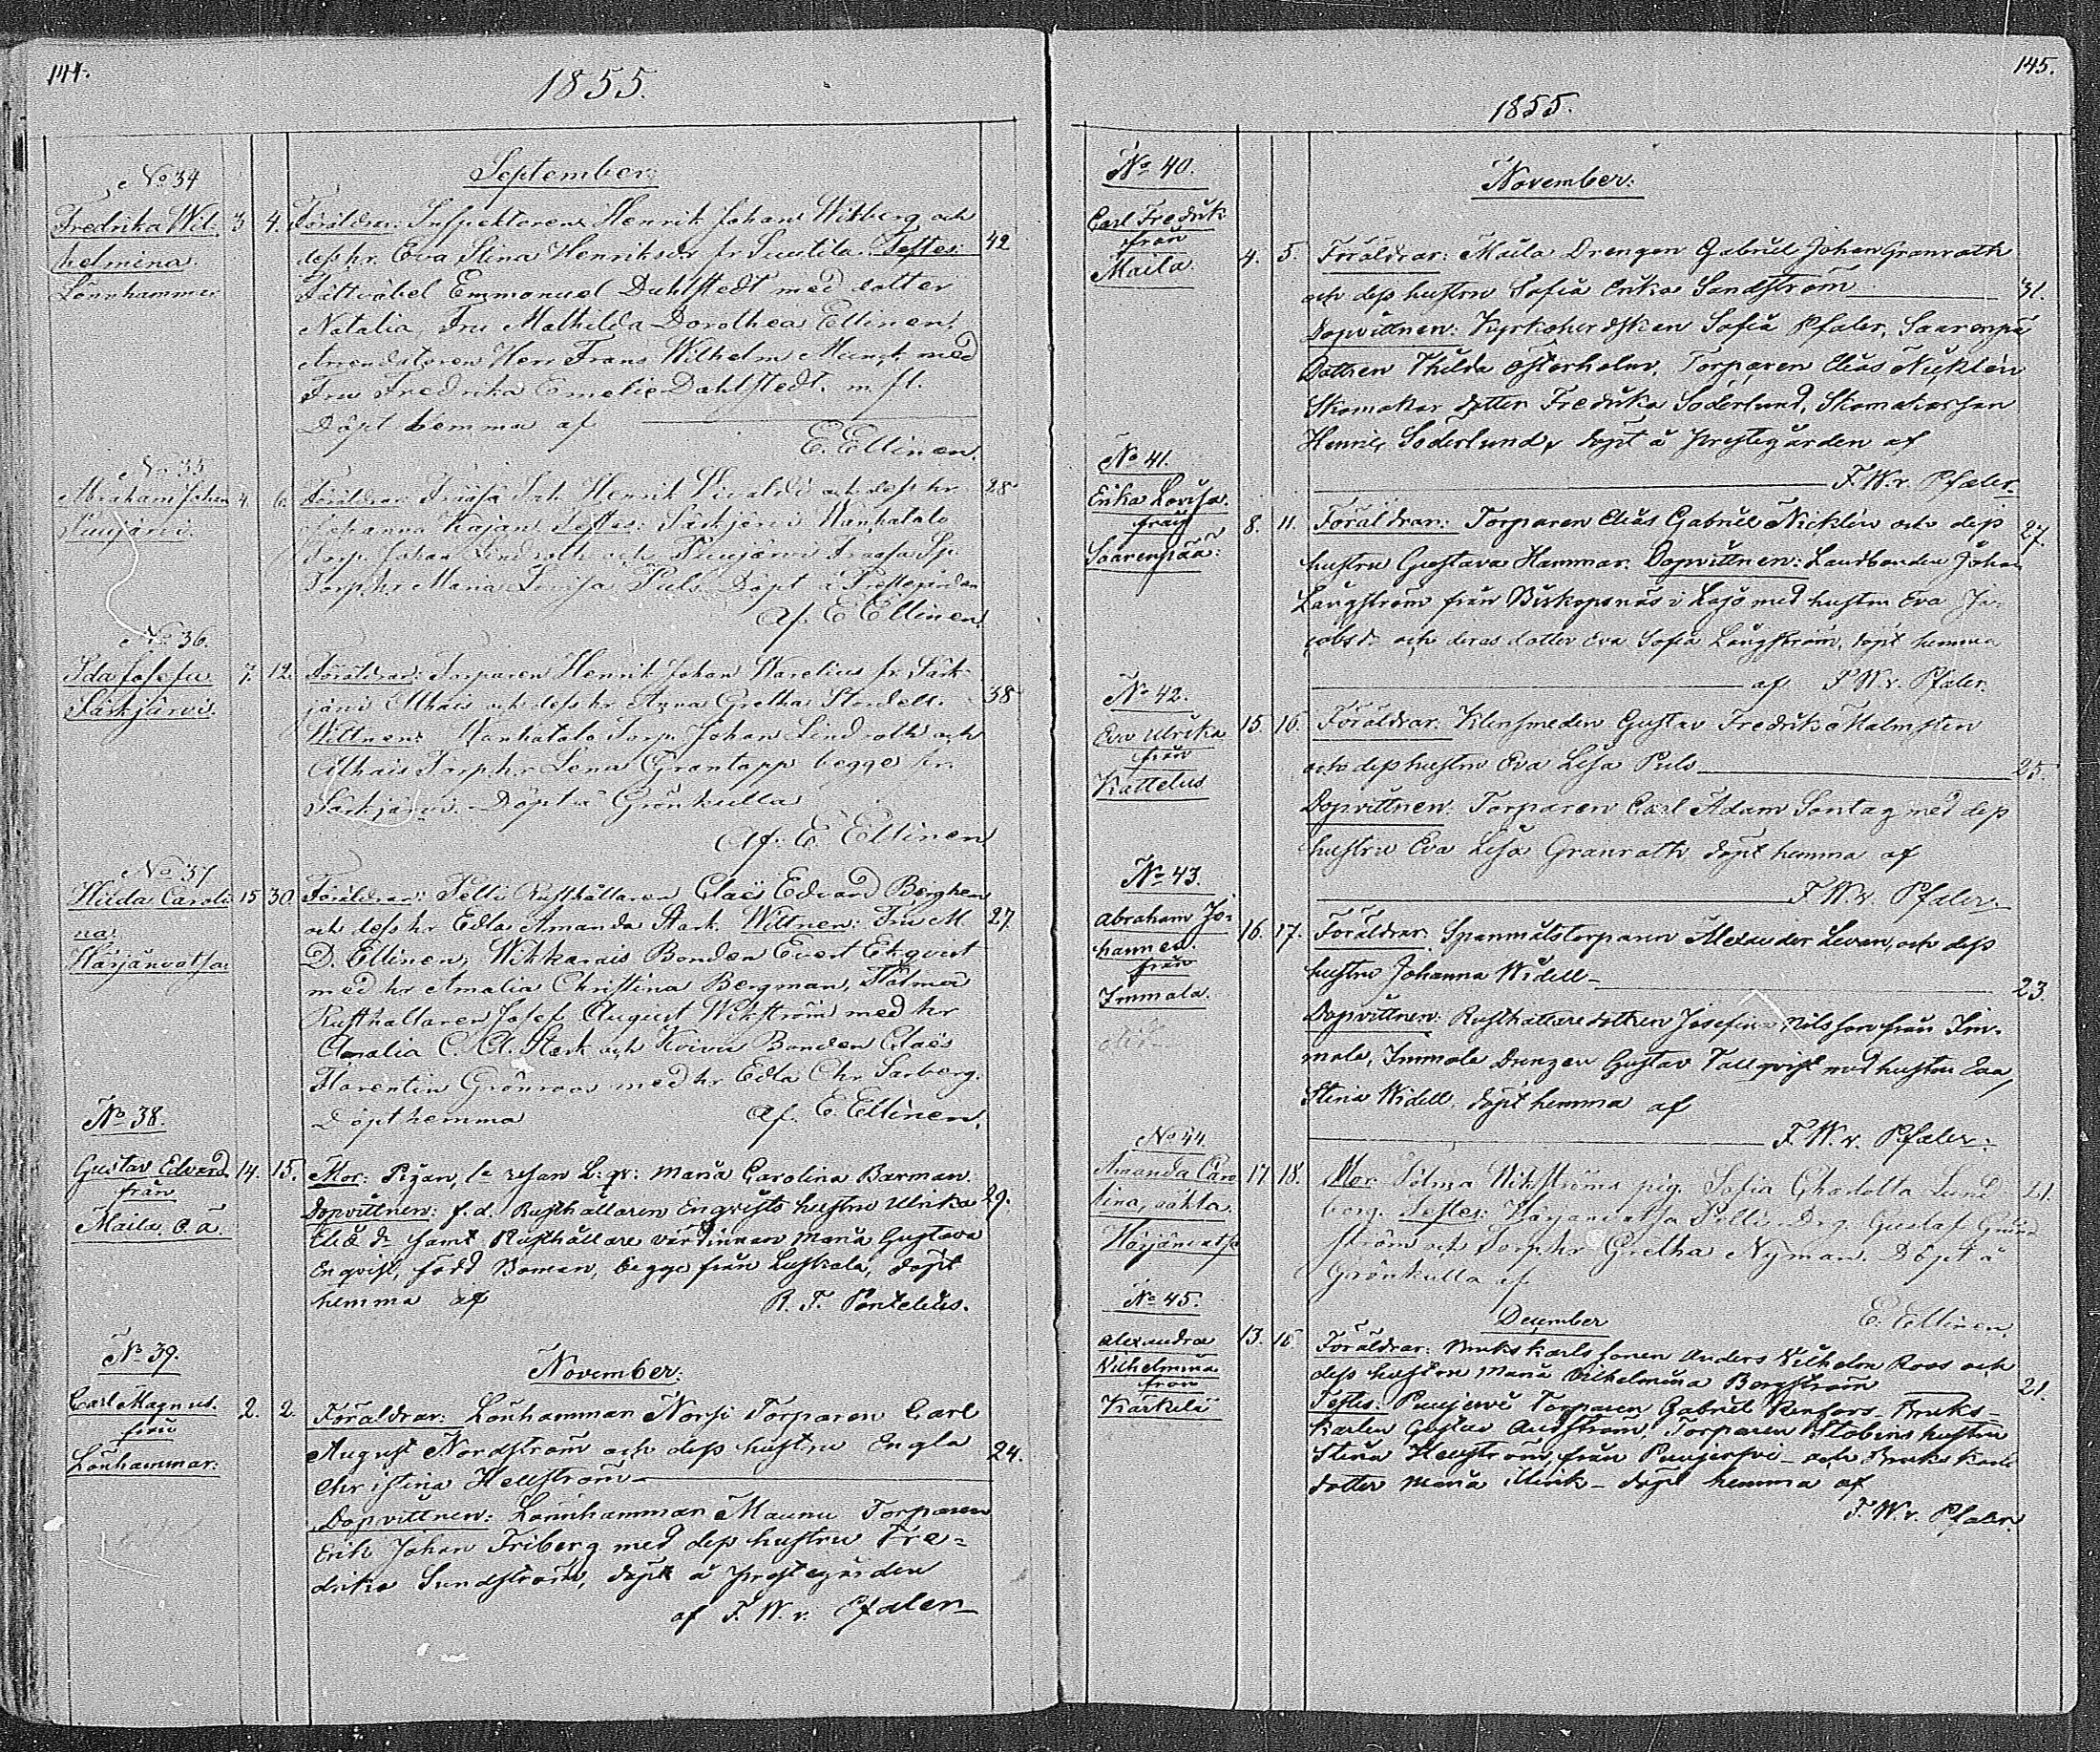 144.
1855.
September.
No 34
Fredrika Wil-
helmina
Lönnhammar
3 4.
Föräldrar: Inspektoren Henrik Johan Wikberg och
dess hr. Eva Stina Henriksdr fr Suutila. Testes:
42
Fältväbel Emmanuel Dahlstedt med dotter
Natalia, Fru Mathilda Dorothea Ellinen,
Arrendatoren Herr Frans Wilhelm Munck med
Fru Fredrika Emelie Dahlstedt. m. fl.
Döpt hemma af
E. Ellinen.
No 35
Abraham Johan
Puujärvi.
4. 6.
Föräldrar: Henrik och dess hr
28
Johanna Kajan. Testes: Särkjärvi Wanhatalo
Torp. Johan Lindroth och Puujärvi
Torp.hr Maria Lovisa Puls. Döpt i Prestegården
af. E Ellinen.
No 36.
Ida Josefa
Särkjärvi.
7. 12.
Föräldrar: Torparen Henrik Johan Warelius fr. Särk-
järvi Althais och dess hr Anna Gretha Stordell.
38
Wittnen: Wanhatalo Torp. Johan Lindroth och
Althais Torp.hr Lena Grantopp begge fr.
Särkjärvi. Döpt å Grönkulla
Af. E. Ellinen
No 37
Hilda Caroli-
na.
Härjänvatsa
15 30.
Föräldrar: Pelli Rusthållaren Claës Edvard Berghem
och dess hr Edla Amanda Stark. Wittnen: Fru M.
27.
D. Ellinen, Wikkarais Bonden Evert Ekqvist
med hr Amalia Christina Bergman, Tölma
Rusthållaren Josef August Wikström med hr
Amalia C. Cl. Stark och Koivu Bonden Claës
Florentin Grönroos med hr Edla Chr. Sarberg.
Döpt hemma
af. E. Ellinen.
No 38.
Gustav Edvard
från
Maila. o. ä.
14. 15.
Mor: Pigan, Maria Carolina Barman.
Dopvittnen: f.d. Rusthållaren Enqvists hustru Ulrika
29.
Elias dr samt Rusthållare värdinnan Maria Gustava
Enqvist, född Boman, begge från Luskala, döpt
hemma af
R. T. Pontelius.
No 39.
Carl Magnus.
från
Lönhammar:
2. 2.
November:
Föräldrar: Lönhamman Norsi Torparen Carl
August Nordström och dess hustru Engla
24.
Christina Hellström
Dopvittnen: Lönnhamman Maunu Torparen
Erik Johan Friberg med dess hustru Fre-
drika Sundström, döpt å prestgården
af F. W. v. Pfaler
145.
1855.
November:
No 40.
Carl Fredrik
från
Maila.
4. 5.
Föräldrar: Maila Drengen Gabriel Johan Granroth
och dess hustru Sofia Erika Sandström
31.
Dopvittnen: Kyrkoherdskan Sofia Pfaler, Saarenpä
Dottren Thilda Österholm, Torparen Elias Nicklén
Skomakar dotter Fredrika Söderlund, Skomakarson
Henric Söderlund, döpt å prestegården af
F. W. v. Pfaler.
No 41.
Erika Lovisa.
från
Saarenpää:
8. 11.
Föräldrar: Torparen Elias Gabriel Nicklén och dess
27.
hustru Gustava Hammar. Dopvittnen: Landbonden Johan
Långström från Biskopsnäs i Lojo med hustru Eva Ja-
cobsdr och deras dotter Eva Sofia Långström, döpt hemma
af F. W. v. Pfaler.
No 42.
Eva Ulrika
från
Kattelus
15. 16.
Föräldrar: Klensmeden Gustav Fredrik Malmsten
och dess hustru Eva Lisa Puls
25.
Dopvittnen: Torparen Carl Adam Sontag med dess
hustru Eva Lisa Granroth döpt hemma af
F. W. v. Pfaler
No 43.
Abraham Jo-
hannes.
från
Immola.
16. 17.
Föräldrar: Spanmålstorparen Alexander Leven, och dess
hustru Johanna Widell
23.
Dopvittnen: Rusthållaredottren Josefina Nilsson från Im-
mola, Immola Drengen Gustav Tallqvist med hustru Eva
Stina Widell. döpt hemma af
F. W. v. Pfaler:
No 44.
Amanda Caro-
lina, oäkta.
Härjänvatsa
17 18.
Mor: Tölma Wikströms pig. Sofia Charlotta Lund-
21.
berg. Testes: Härjänvatsa Pelli Drg. Gustaf Grund-
ström och Torp.hr Gretha Nyman. Döpt å
Grönkulla af
E. Ellinen.
December
No 45.
Alexandra
Vilhelmina
från
Kärkelä
13. 16
Föräldrar: Brukskarlssonen Anders Vilhelm Roos och
dess hustru Maria Vilhelmina Bergström
21.
Testes: Puujervi Torparen Gabriel Renfors, Bruks-
karlen Gustav Andström, Torparen Stobins hustru
Stina Hellström från Puujervi och Brukskarls
dotter Maria Ulrik döpt hemma af
F. W. v. Pfaler.